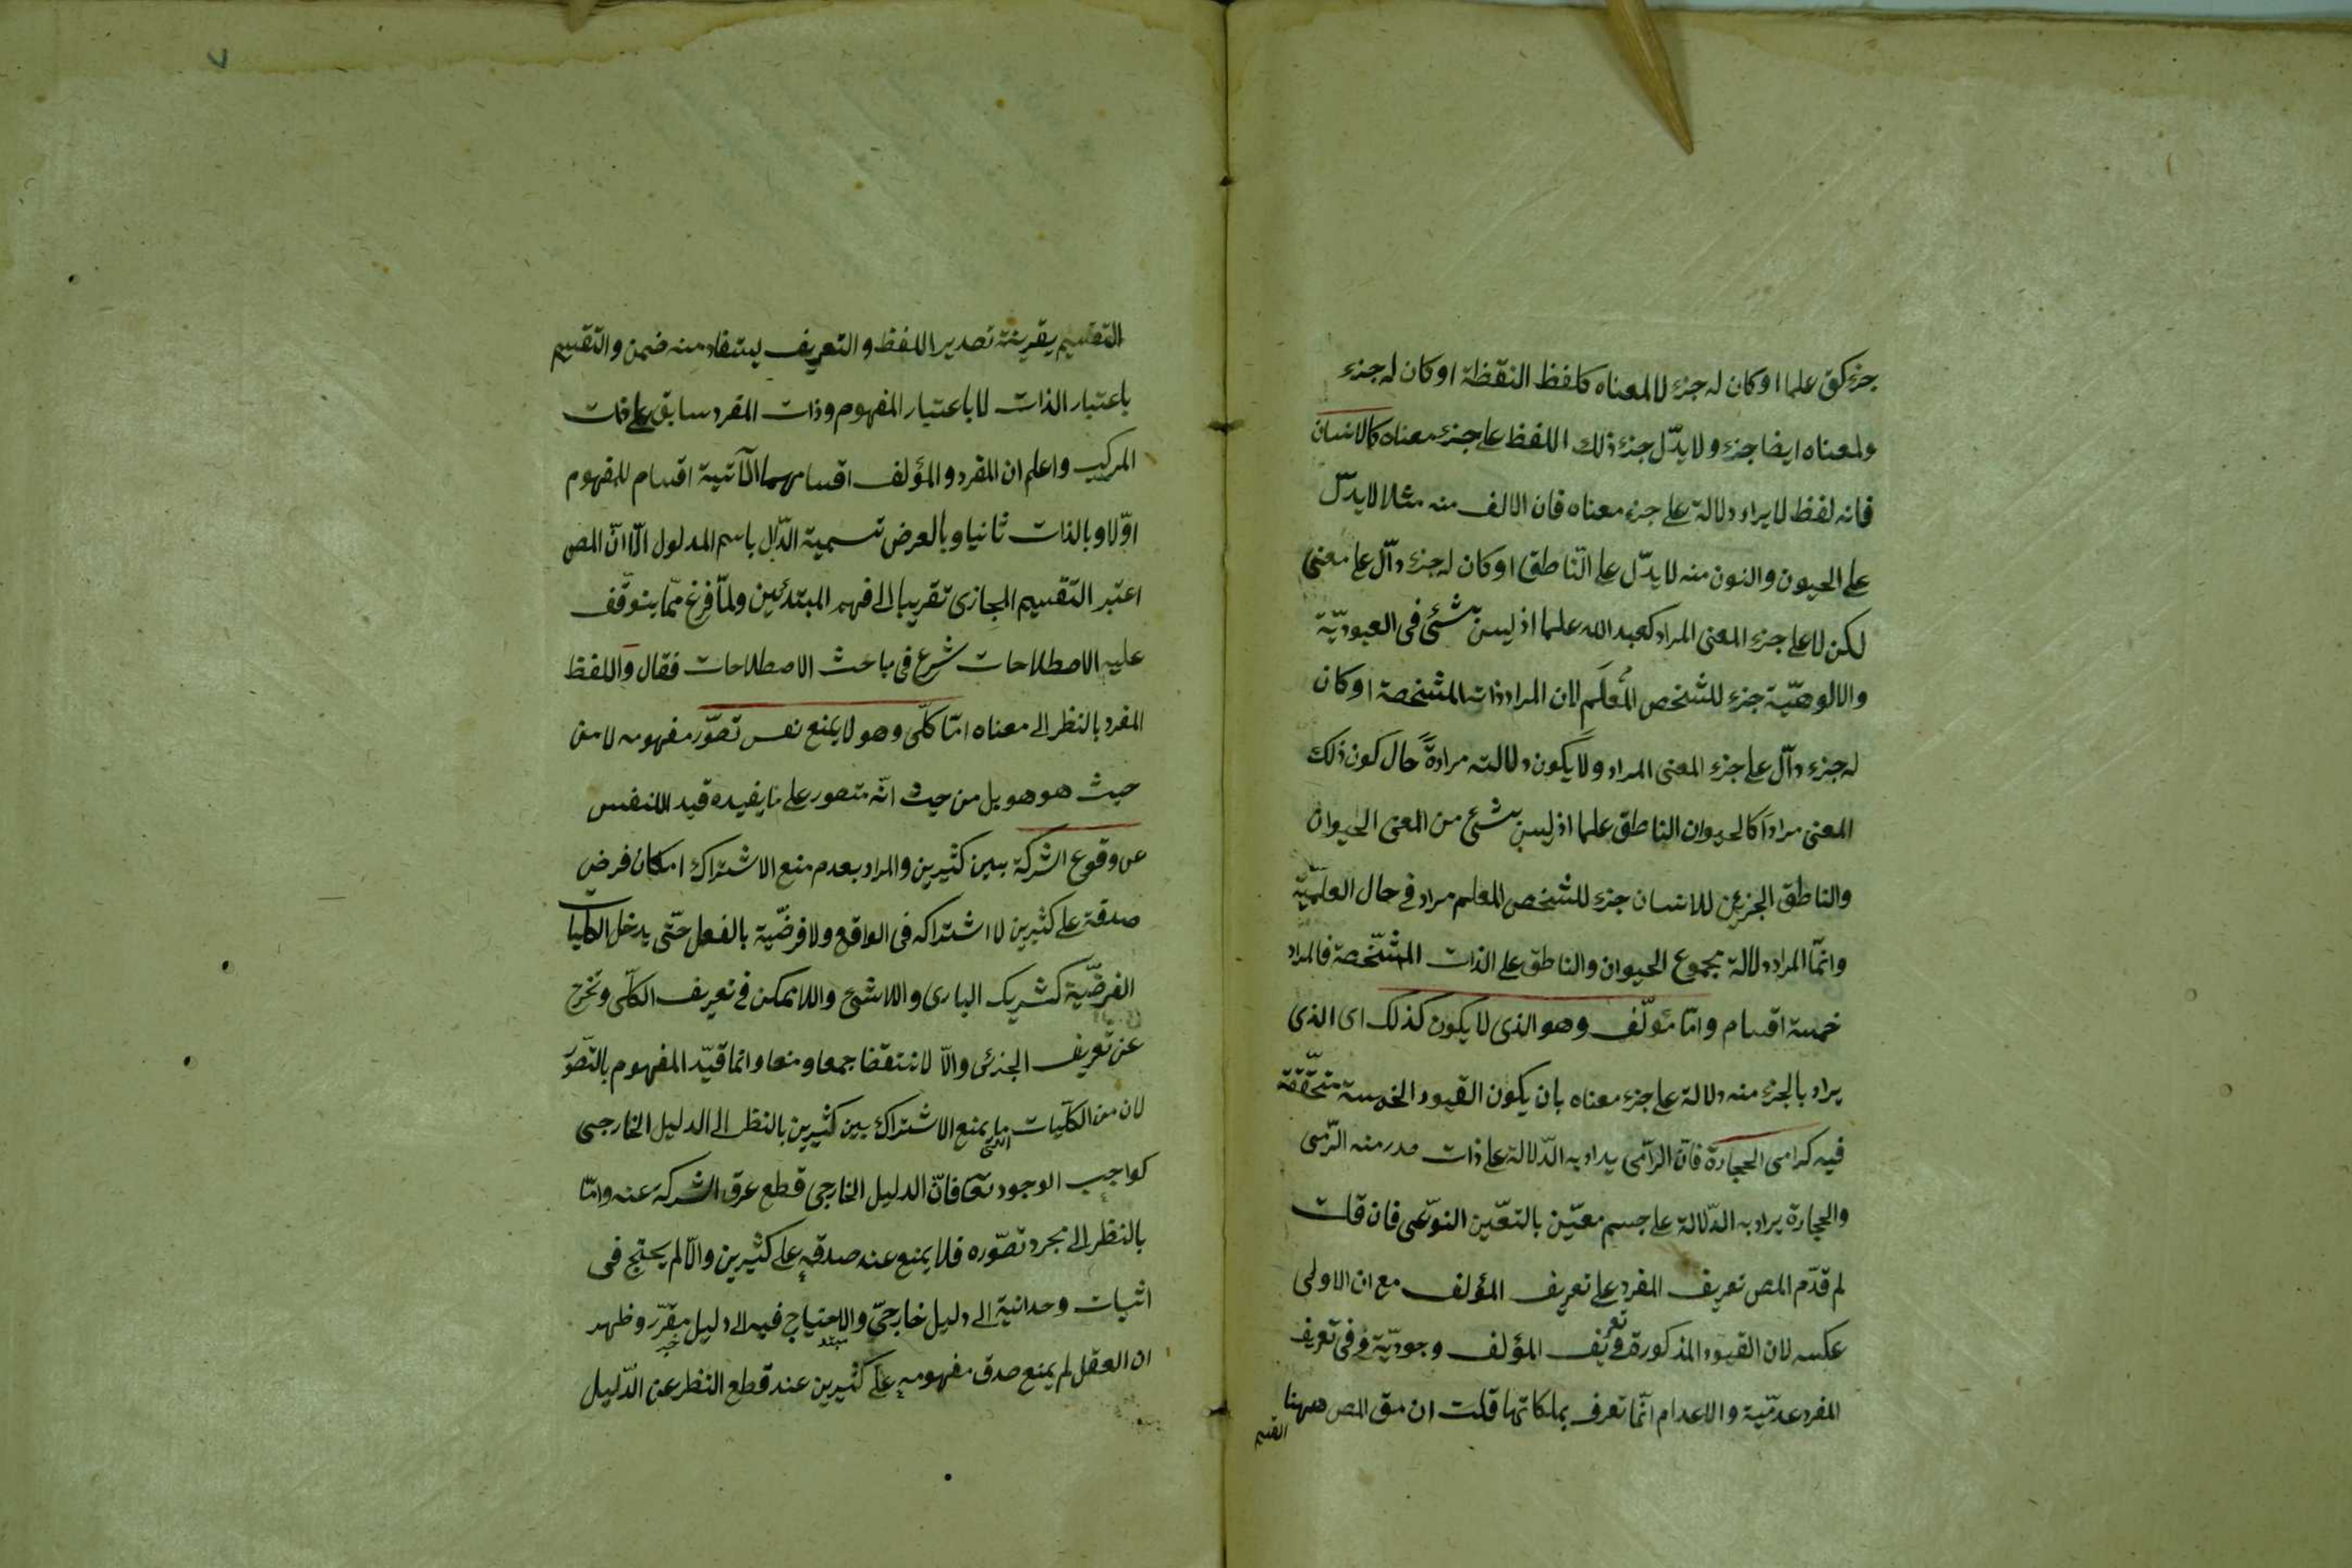 جزء كق علما او كان له جزء لا لمعناه كلفظ النقطة او كان له جزء
ولمعناه ايضا جزء ولا يدّل جزء ذلك اللفظ على جزء معناه كالانسان
فانه لفظ لا يراد دلالة على جزء معناه فان الالف منه مثلا لا يدلّ
على الحيون والنون منه لا يدّل على النّاطق او كان له جزء دآلّ على معنى
لكن لا على جزء المعنى المراد كعبد الله علما اذ ليس شئ فى العبوديّة
والالوهيّة جزء للشخص المُعلَم لان المراد ذات المشخصة او كان
له جزء دآلّ على جزء المعنى المراد ولا يكون دلالته مرادةً حال كون ذلك
المعنى مراداً كالحيوان الناطق علما اذ ليس شئ من المعنى الحيوان
والناطق الجزءين للانسان جزء للشخص المعلم مراد فى حال العلميّة
وانمّا المراد دلالة مجموع الحيوان والناطق على الذات المشّخصة فالمراد
خمسة اقسام وامّا مؤلّف وهو الذى لا يكون كذلك اى الذى
يراد بالجزء منه دلالة على جزء معناه بان يكون القيود الخمسة متحقّقة
فيه كرامى الحجارة فانّ الرّامى يراد به الدّلالة على ذات صدر منه الرّمى
والحجارة يراد به الدّلالة على جسم معيّن بالتعّين النوّعى فان قلت
لم قدّم المص تعريف المفرد على تعريف المؤلف مع ان الاولى
عكسه لان القيود المذكورة فى تعريف المؤلف وجوديّة وفى تعريف
المفرد عدميّة والاعدام انمّا تعرف بملكاتها قلت ان مق المص ههنا
التقسيم
التقسيم بقرينة تصدير اللفظ والتعريف يستفاد منه ضمن والتقسيم
باعتبار الذات لا باعتبار المفهوم وذات المفرد سابق على ذات
المركب واعلم ان المفرد والمؤلف اقسامهما الآتية اقسام للمفهوم
اوّلا وبالذات ثانيا وبالعرض تسمية الدّال باسم المدلول الّا انّ المص
اعتبر التقسيم المجازى تقريبا الى فهم المبتدئين ولمّا فرغ ممّا يتوقّف
عليه الاصطلاحات شرع فى مباحث الاصطلاحات فقال واللفظ
المفرد بالنظر الى معناه امّا كلّى وهو لا يمنع نفس تصوّر مفهومه لا من
حيث هو هو بل من حيث انّه متصور على ما يفيده قيد النفس
عن وقوع الشركة بين كثيرين والمراد بعدم منع الاشتراك امكان فرض
صدقة على كثيرين لا اشتراكه فى الواقع ولا فرضيّة بالفعل حتّى يدخل الكليات
الفرضيّة كشريك البارى واللاشئ واللاممكن فى تعريف الكلّى وتخرج
عن تعريف الجزئى والاّ لانتقضا جمعا ومنعا وانما قيّد المفهوم بالتصّور
لان من الكلّيات ما يمنع الاشتراك بين كثيرين بالنظر الى الدليل الخارجى
كواجب الوجود تعا فانّ الدليل الخارجى قطع عرق الشركة عنه وامّا
بالنظر الى مجرد تصوّره فلا يمنع عنه صدقه على كثيرين والاّ لم يحتج فى
اثبات وحدانية الى دليل خارجىّ والاحتياج فيه الى دليل مقرّر وظهر
ان العقل لم يمنع صدق مفهومه على كثيرين عند قطع النظر عن الدّليل